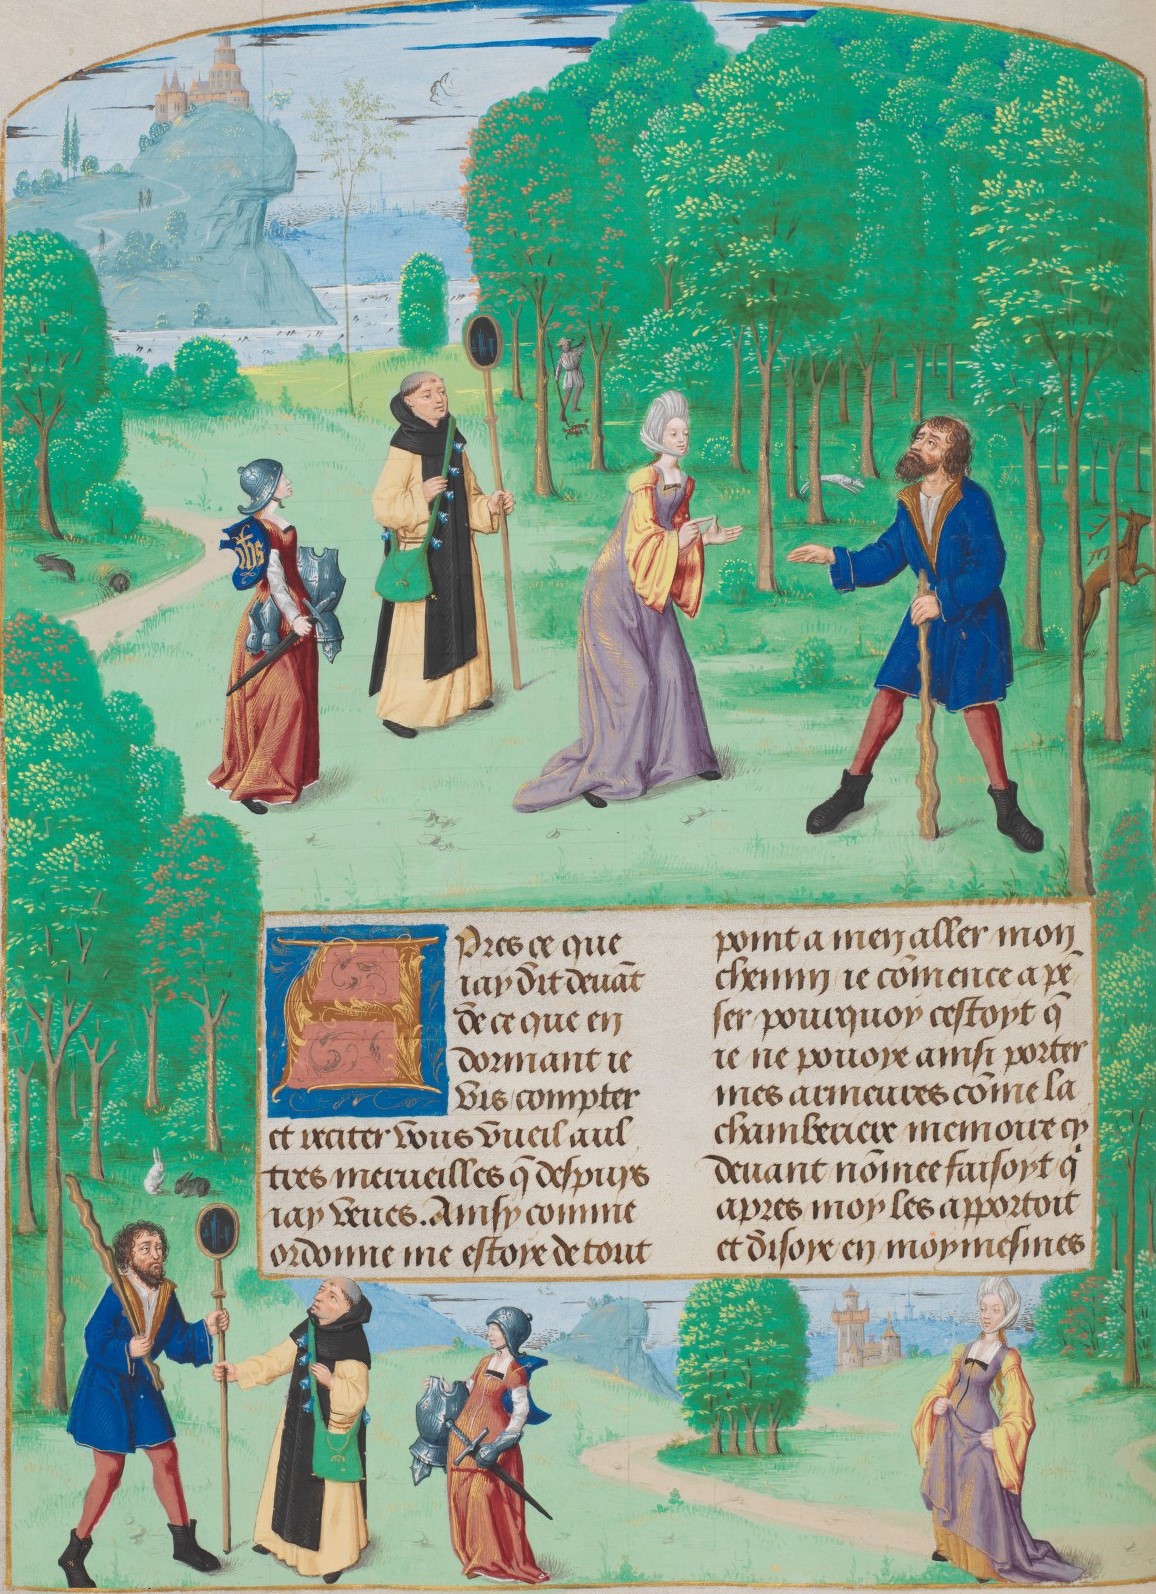 ihs
Apres ce que
iay dit deuāt
de ce que en
dormant ie
vis compter
et reciter vous vueil aul
tres merueilles q̄ despuis
iay veues. Ainsy comme
ordonne me estoye de tout
point a men aller mon
chemin ie cōmence a pē
ser pourquoy cestoyt q̄
ie ne pouoye ainsi porter
mes armeures cōme la
chamberiere memoire cy
deuant nōmee faisoyt q̄
apres moy les apportoit
et disoye en moy mesmes